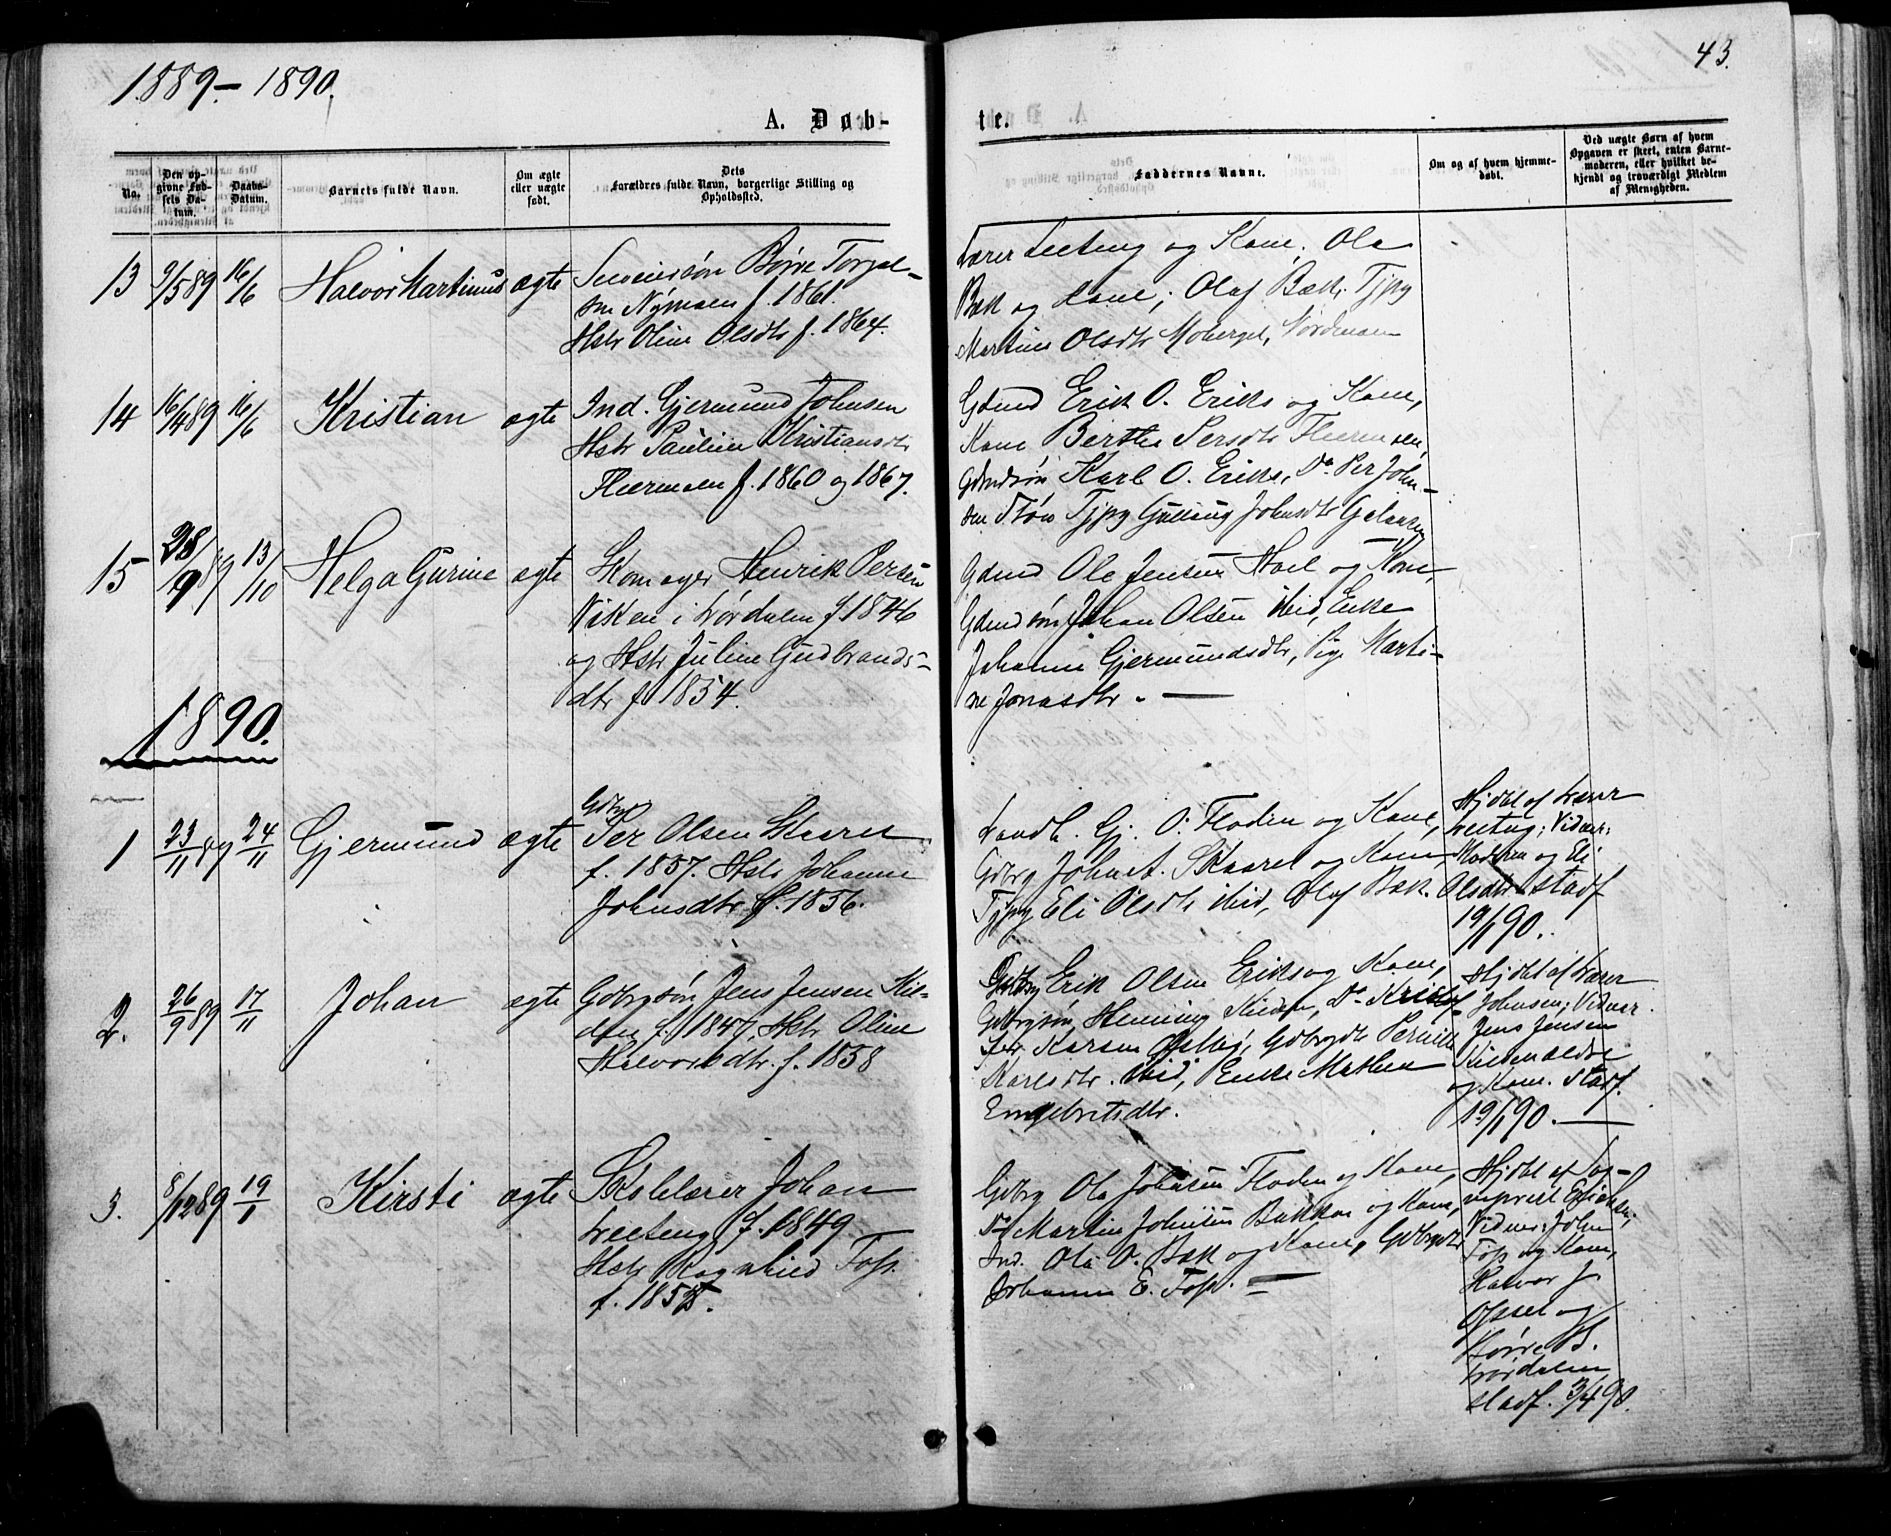 1889.- 1890.
43.
A. Døb-
te.
No.
Den op-
givne Fød-
sels Da-
tum.
Daabs-
Datum.
Barnets fulde Navn.
Om ægte
eller uægte
født.
Dets
Forældres fulde Navn, borgerlige Stilling og
Opholdssted.
Faddernes Navne.
Om og af hvem hjemme-
døbt.
Ved uægte Børn af hvem
Opgaven er skeet, enten Barne-
moderen, eller hvilket be-
kjendt og troværdigt Medlem
af Menigheden.
13 9/5 89 16/6 Halvor Martinus ægte
Børre Torgal-
sen Nymoen f. 1861.
Hstr Oline Olsdtr f. 1864.
Lærer Leeteng og Kone. Ola
Bæk og Kone; Olaf Bæk. Tjpg
Martine Olsdtr Moberget, Nordmoen
14 16/4 89 16/6 Kristian ægte
Ind. Gjermund Johnsen
Hstr Pauline Kristiansdtr
f. 1860 og 1867.
Gdmd Erik O. Eriks og Kone,
Kone Berthe Persdtr
Gdmdsøn Karl O. Eriks, Do Per John-
sen Tjpg Johnsdtr
15 28/9 89 13/10 Helga Gurine ægte
Skomager Henrik Persen
Viken i Lørdalen f 1846
og Hstr Juline Gudbrands-
dtr f 1854.
Gdmd Ole Jensen Hoel og Kone,
Gdmdsøn Johan Olsen ibid, Enke
Johanne Gjermundsdtr, Pige Marti-
ne Jonasdtr. —
1890.
1 23/11 89 24/11 Gjermund ægte
Gdbrg
Per Olsen Skaaret
f. 1857. Hstr Johanne
Johnsdtr f. 1856.
Landh. Gj. O. Floden og Kone,
Gdbrg John Skaaret og Kone
Tjpg Eli Olsdtr ibid, Olaf Bæk.
Hjdbt af Lærer
Leeteng; Vidner:
Moderen og Eli
Olsdtr stadf
19/1 90.
2. 26/9 89 17/11 Johan ægte
Gdbrgsøn Jens Jensen Kil-
den f. 1847, Hstr Oline
Halvorsdtr. f. 1858
Gdbrg Erik Olsen Eriks og Kone,
Gdbrgsøn Henning Do
Karen Gdbrgdtr Pernille
Karlsdtr. ibid, Enke Mathea
Engebretsdtr.
Hjdbt af Lærer
Johnsen; Vidner
Jens Jensen
Kilden ældre
og Kone. Stadf.
19/1 90. —
3. 8/12 89 19/1 Kirsti ægte
Skolelærer Johan
Leeteng f. 1849
Hstr Ragnhild Foss.
Gdbrg Ola Johnsen Floden og Kone,
Do Martin Johnsen Bakken og Kone,
Ind. Ola O. Bæk og Kone, Gdbrgdtr
Johanne E. Foss. —
Hjdbt af Sog-
nepræst
Vidner: John
Foss og Kone,
Halvor J.
Opset og
Børre B.
Lørdalen
stadf. 3/4 90.